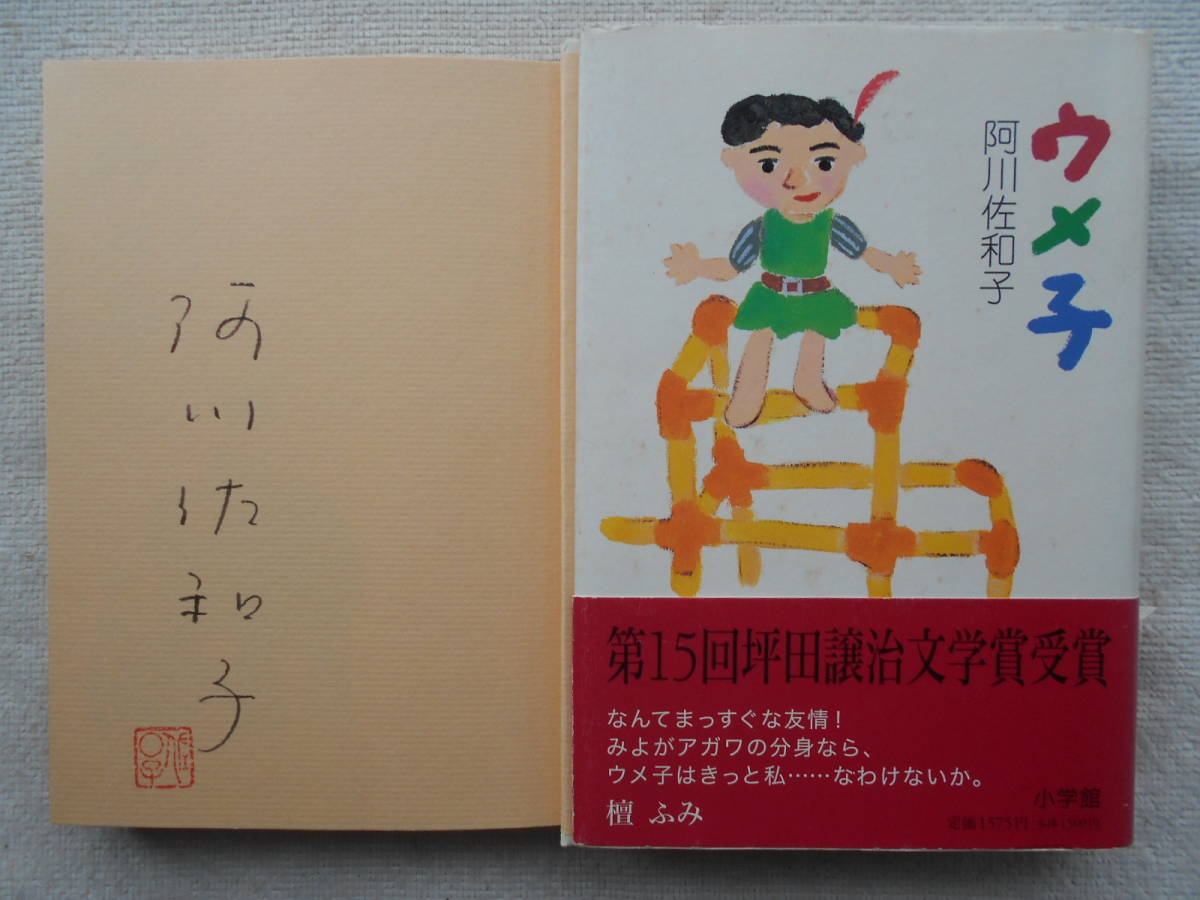 阿川佐和子
ウメ子
阿川佐和子
第15回坪田譲治文学賞受賞
なんてまっすぐな友情！
みよがアガワの分身なら、
ウメ子はきっと私……なわけないか。
檀 ふみ
小学館
定価1575円 本体1500円